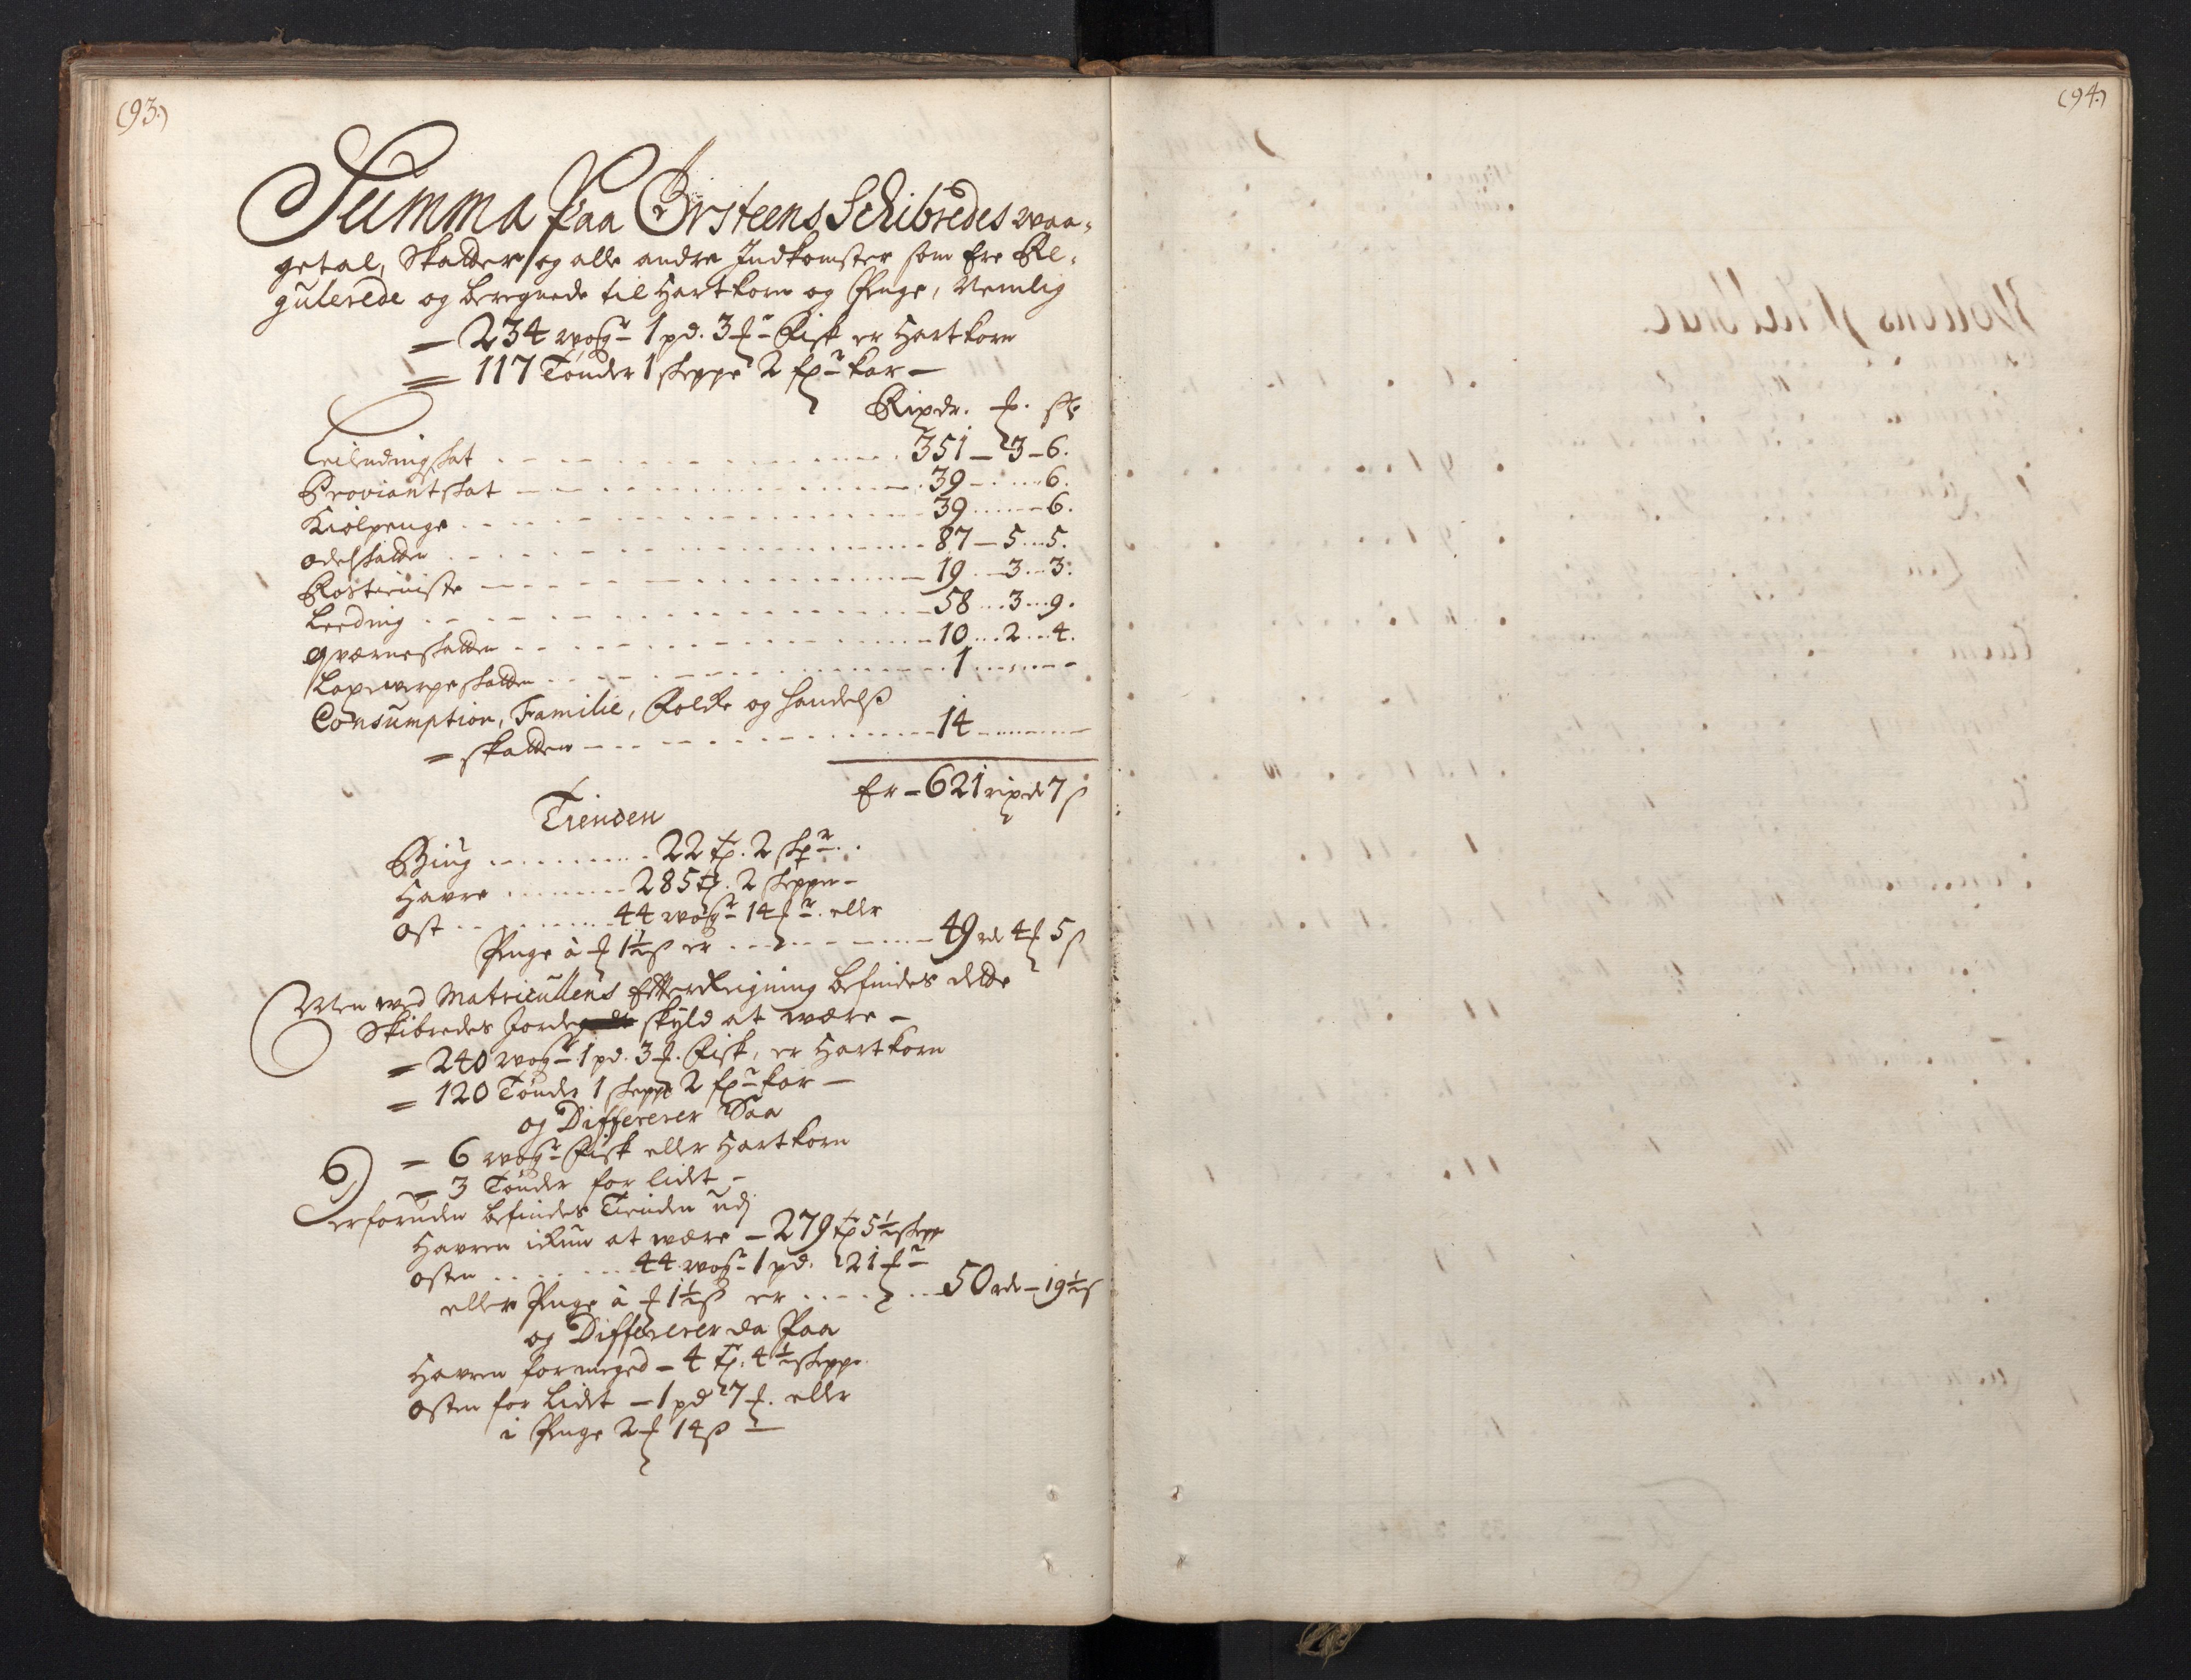 (93.)
Summa paa Örsteens Schibredes waa-
getal, Skatter og alle andre Indkomster som ere Re-
gulerede og beregnede til Hartkorn og Penge, Nemlig
= 234 wog^r 1 pd. 3 ℔^r Fisk er Hartkorn
= 117 Tønder 1 skeppe 2 fr^kar –
Rixdr. ℔. sk
Leilendingskat 351 – 3 – 6.
Proviantskat 39 – 6.
Kiølpenge 39 – 6.
odelskatten 87 – 5 – 5.
Rostieniste 19 – 3 – 3.
Leeding 58 – 3 – 9.
qværneskatten 10 – 2 – 4.
Laxewarpeskatten 1
Consumption, Familie, Folke og handelß
= skatten 14
Er – 621 rixdr 7 ß
Tienden
Biug 22 tr. 2 skpr
Havre 285 tr. 2 skepper –
ost 44 wog^r 14 ℔^r. eller
Penge à ℔ 1½ ß er 49 rd 4 ℔ 5 ß
Men wed Matricullens Efterregning befindes dette
Skibredes Jorde skyld at være –
= 240 wog^r 1 pd. 3 ℔. Fisk, er Hartkorn
= 120 Tønder 1 skeppe 2 fr^kar –
og Differerer Saa
= 6 wog^r Fisk eller Hartkorn
= 3 Tønder for lidt –
Derforuden befindes Tienden udj
Havren ikun at være – 279 tr 5½ skepp
osten 44 wog^r 1 pd. 21 ℔^r
eller Penge à ℔ 1½ ß er 50 rdr – 19½ ß
og Differerer da Paa
Havren for meged – 4 tr. 4½ skeppe.
osten for Lidet – 1 pd 7 ℔. eller
i Penge 2 ℔ 14 ß –
(94.)